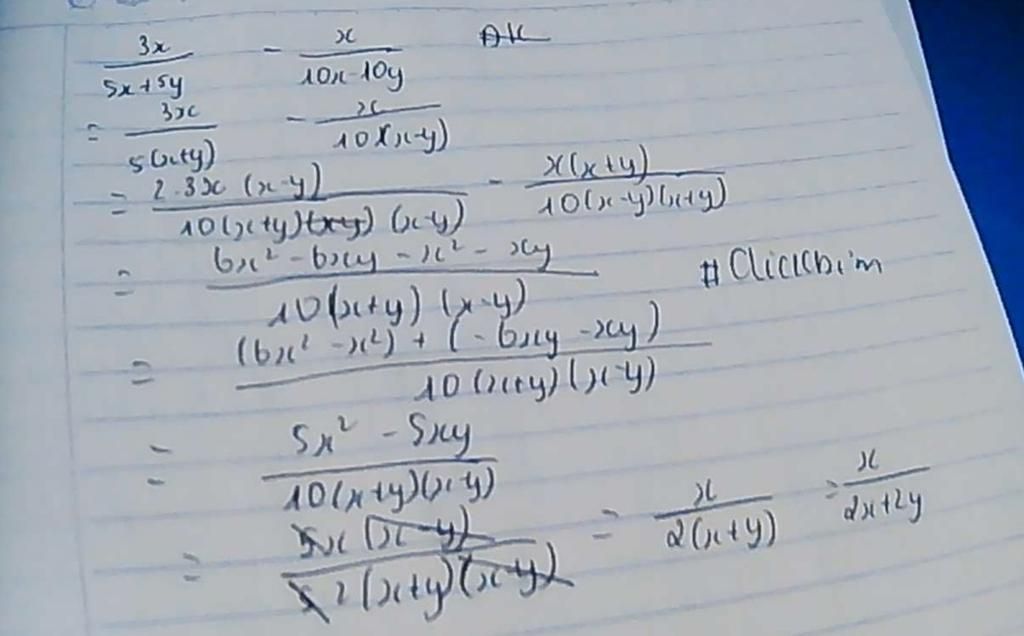 3x/(5x+5y) - x/(10x-10y)
= 3x/5(x+y) - x/10(x-y)
= 2.3x(x-y)/10(x+y)(x-y) - x(x+y)/10(x-y)(x+y)
= (6x² - 6xy - x² - xy)/10(x+y)(x-y) #Clickbim
= ((6x² - x²) + (-6xy - xy))/10(x+y)(x-y)
= (5x² - 5xy)/10(x+y)(x-y)
= 5x(x-y)/5.2(x+y)(x-y) = x/2(x+y) = x/(2x+2y)